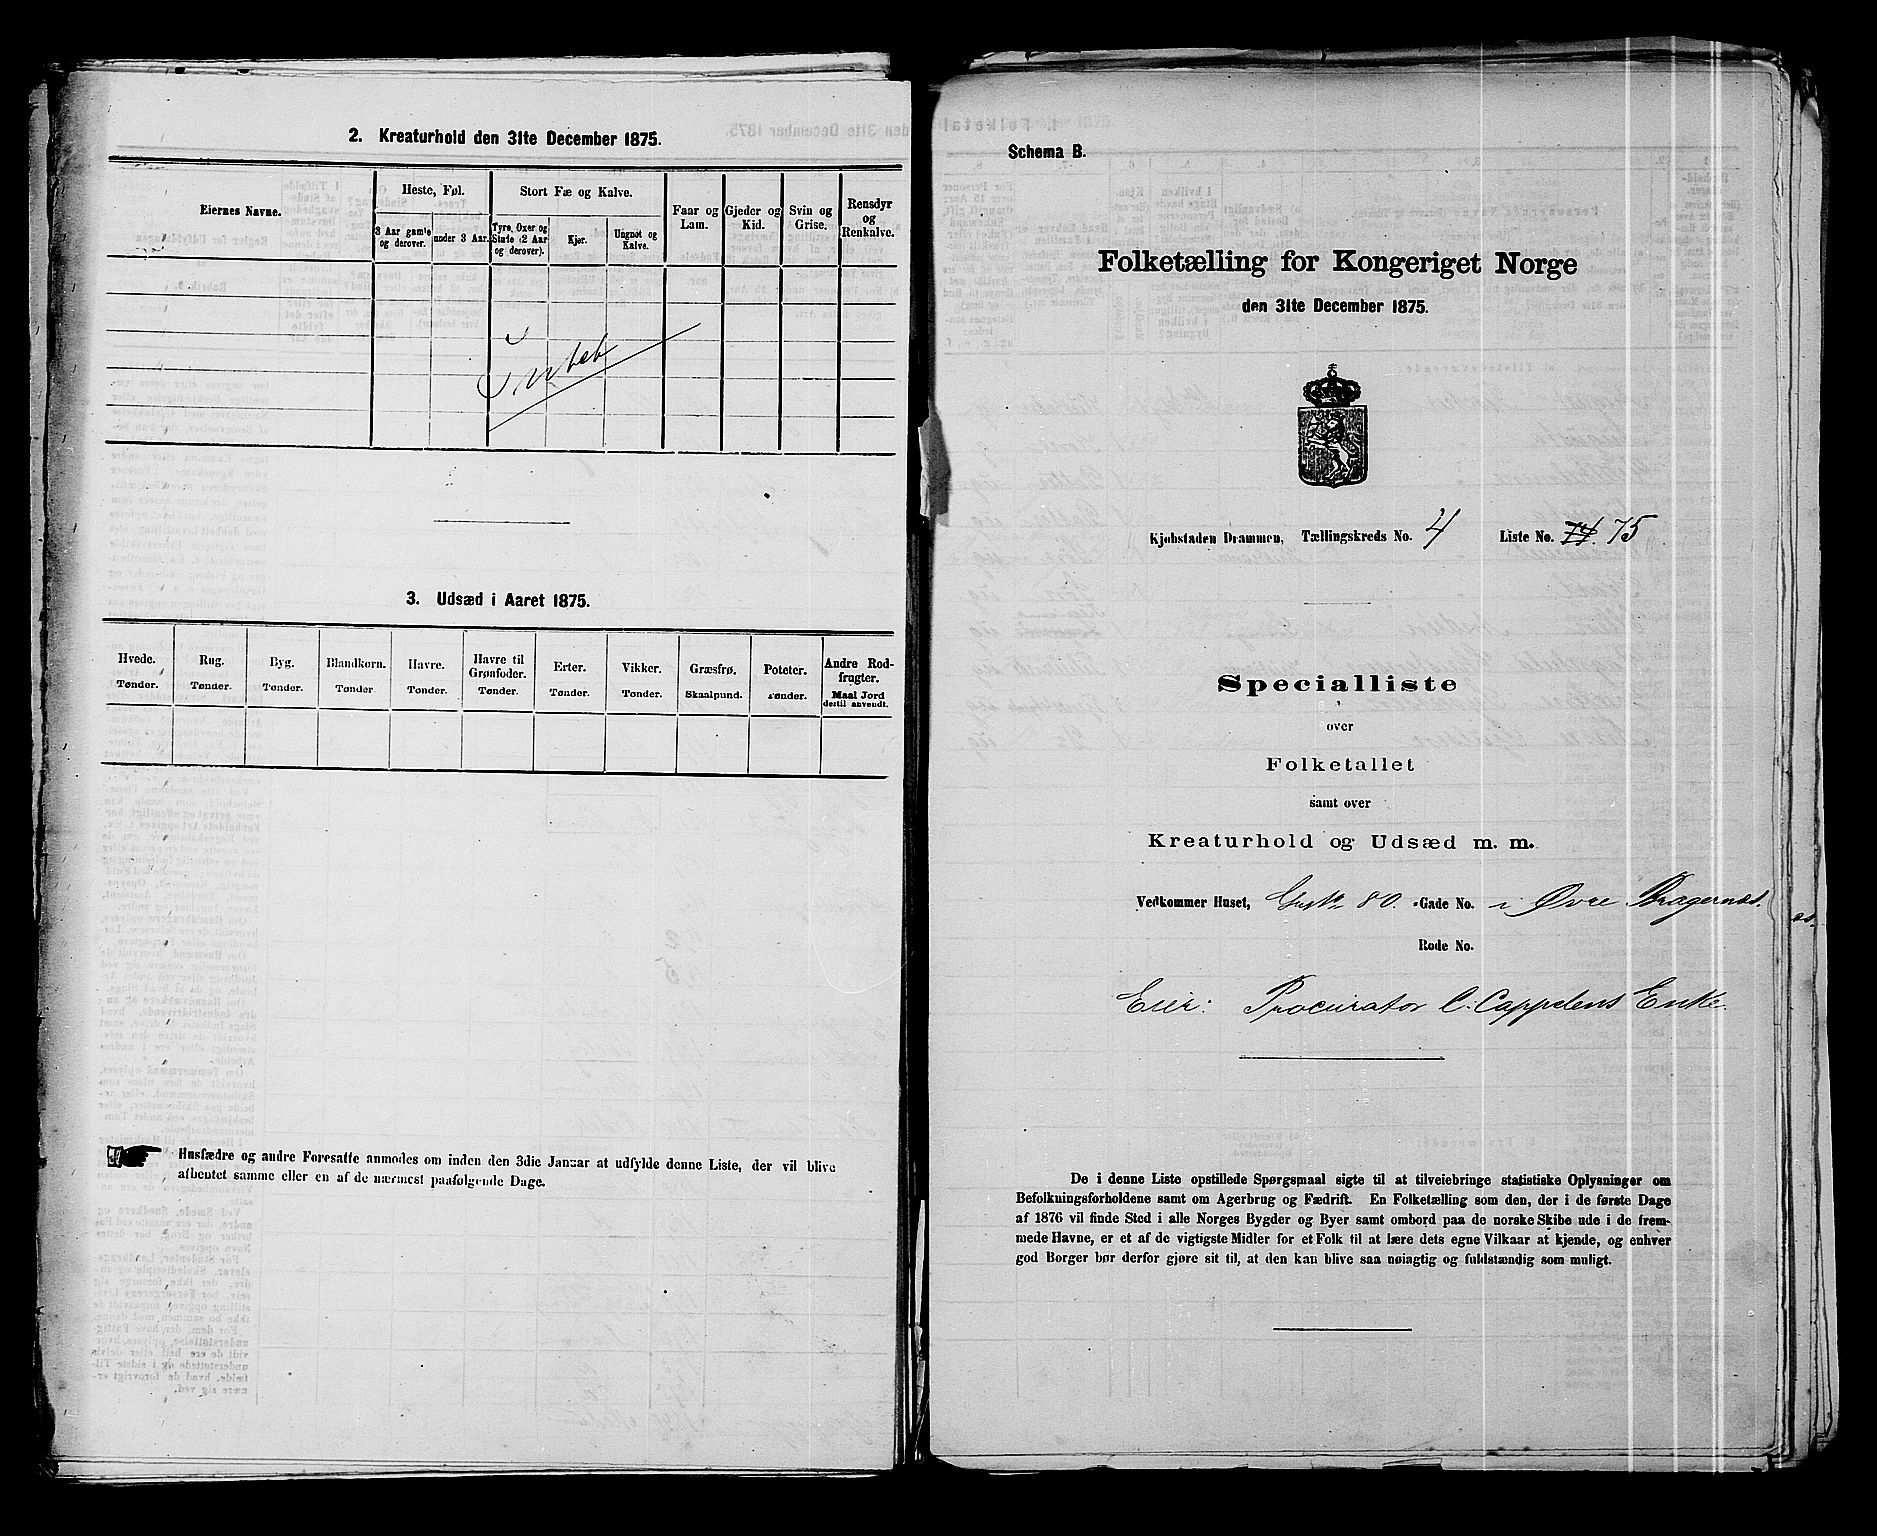 2. Kreaturhold den 31te December 1875.
Eiernes Navne.
Heste, Føl.
3 Aar gamle og derover.
under 3 Aar.
Stort Fæ og Kalve.
Tyre, Oxer og Stude (2 Aar og derover).
Kjør.
Ungnøt og Kalve.
Faar og Lam.
Gjeder og Kid.
Svin og Grise.
Rensdyr og Renkalve.
Intet
3. Udsæd i Aaret 1875.
Hvede. Rug. Byg. Blandkorn. Havre. Havre til Grønfoder. Erter. Vikker. Græsfrø. Poteter. Andre Rodfrugter.
Tønder. Tønder. Tønder. Tønder Tønder. Tønder. Tønder. Tønder. Skaalpund. Tønder. Maal Jord dertil anvendt.
Husfædre og andre Foresatte anmodes om inden den 3die Januar at udfylde denne Liste, der vil blive
afhentet samme eller en af de nærmest paafølgende Dage.
Schema B.
Folketælling for Kongeriget Norge
den 31te December 1875.
Kjøbstaden Drammen, Tællingskreds No. 4 Liste No. 74. 75
Specialliste
over
Folketallet
samt over
Kreaturhold og Udsæd m. m.
Vedkommer Huset, 80. -Gade No. i Øvre Bragernæs.
Rode No.
Eier: Procurator C. Cappelens Enke.
De i denne Liste opstillede Spørgsmaal sigte til at tilveiebringe statistiske Oplysninger om
Befolkningsforholdene samt om Agerbrug og Fædrift. En Folketælling som den, der i de første Dage
af 1876 vil finde Sted i alle Norges Bygder og Byer samt ombord paa de norske Skibe ude i de frem-
mede Havne, er et af de vigtigste Midler for et Folk til at lære dets egne Vilkaar at kjende, og enhver
god Borger bør derfor gjøre sit til, at den kan blive saa nøiagtig og fuldstændig som muligt.